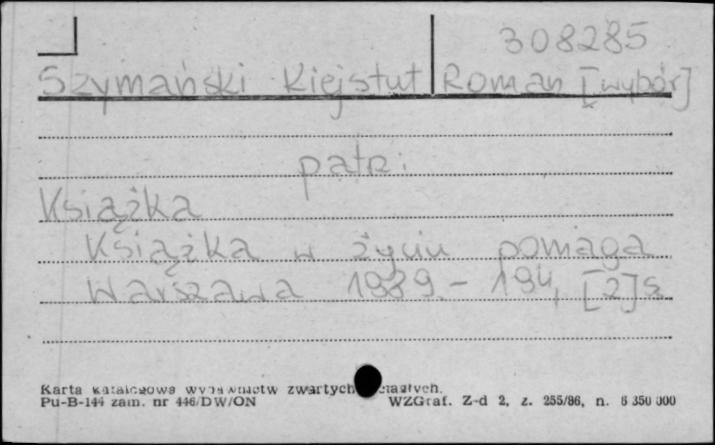 308285
Szymański Kiejstut Roman [wybór]
patr.
Książka
Książka w życiu pomaga
Warszawa 1989.- 194, [2] s.
Karta katalogowa wydawnictw zwartych ciągłych.
Pu-B-144 zam. nr 446/DW/ON WZGraf. Z-d 2, z. 255/86, n. 6 350 000